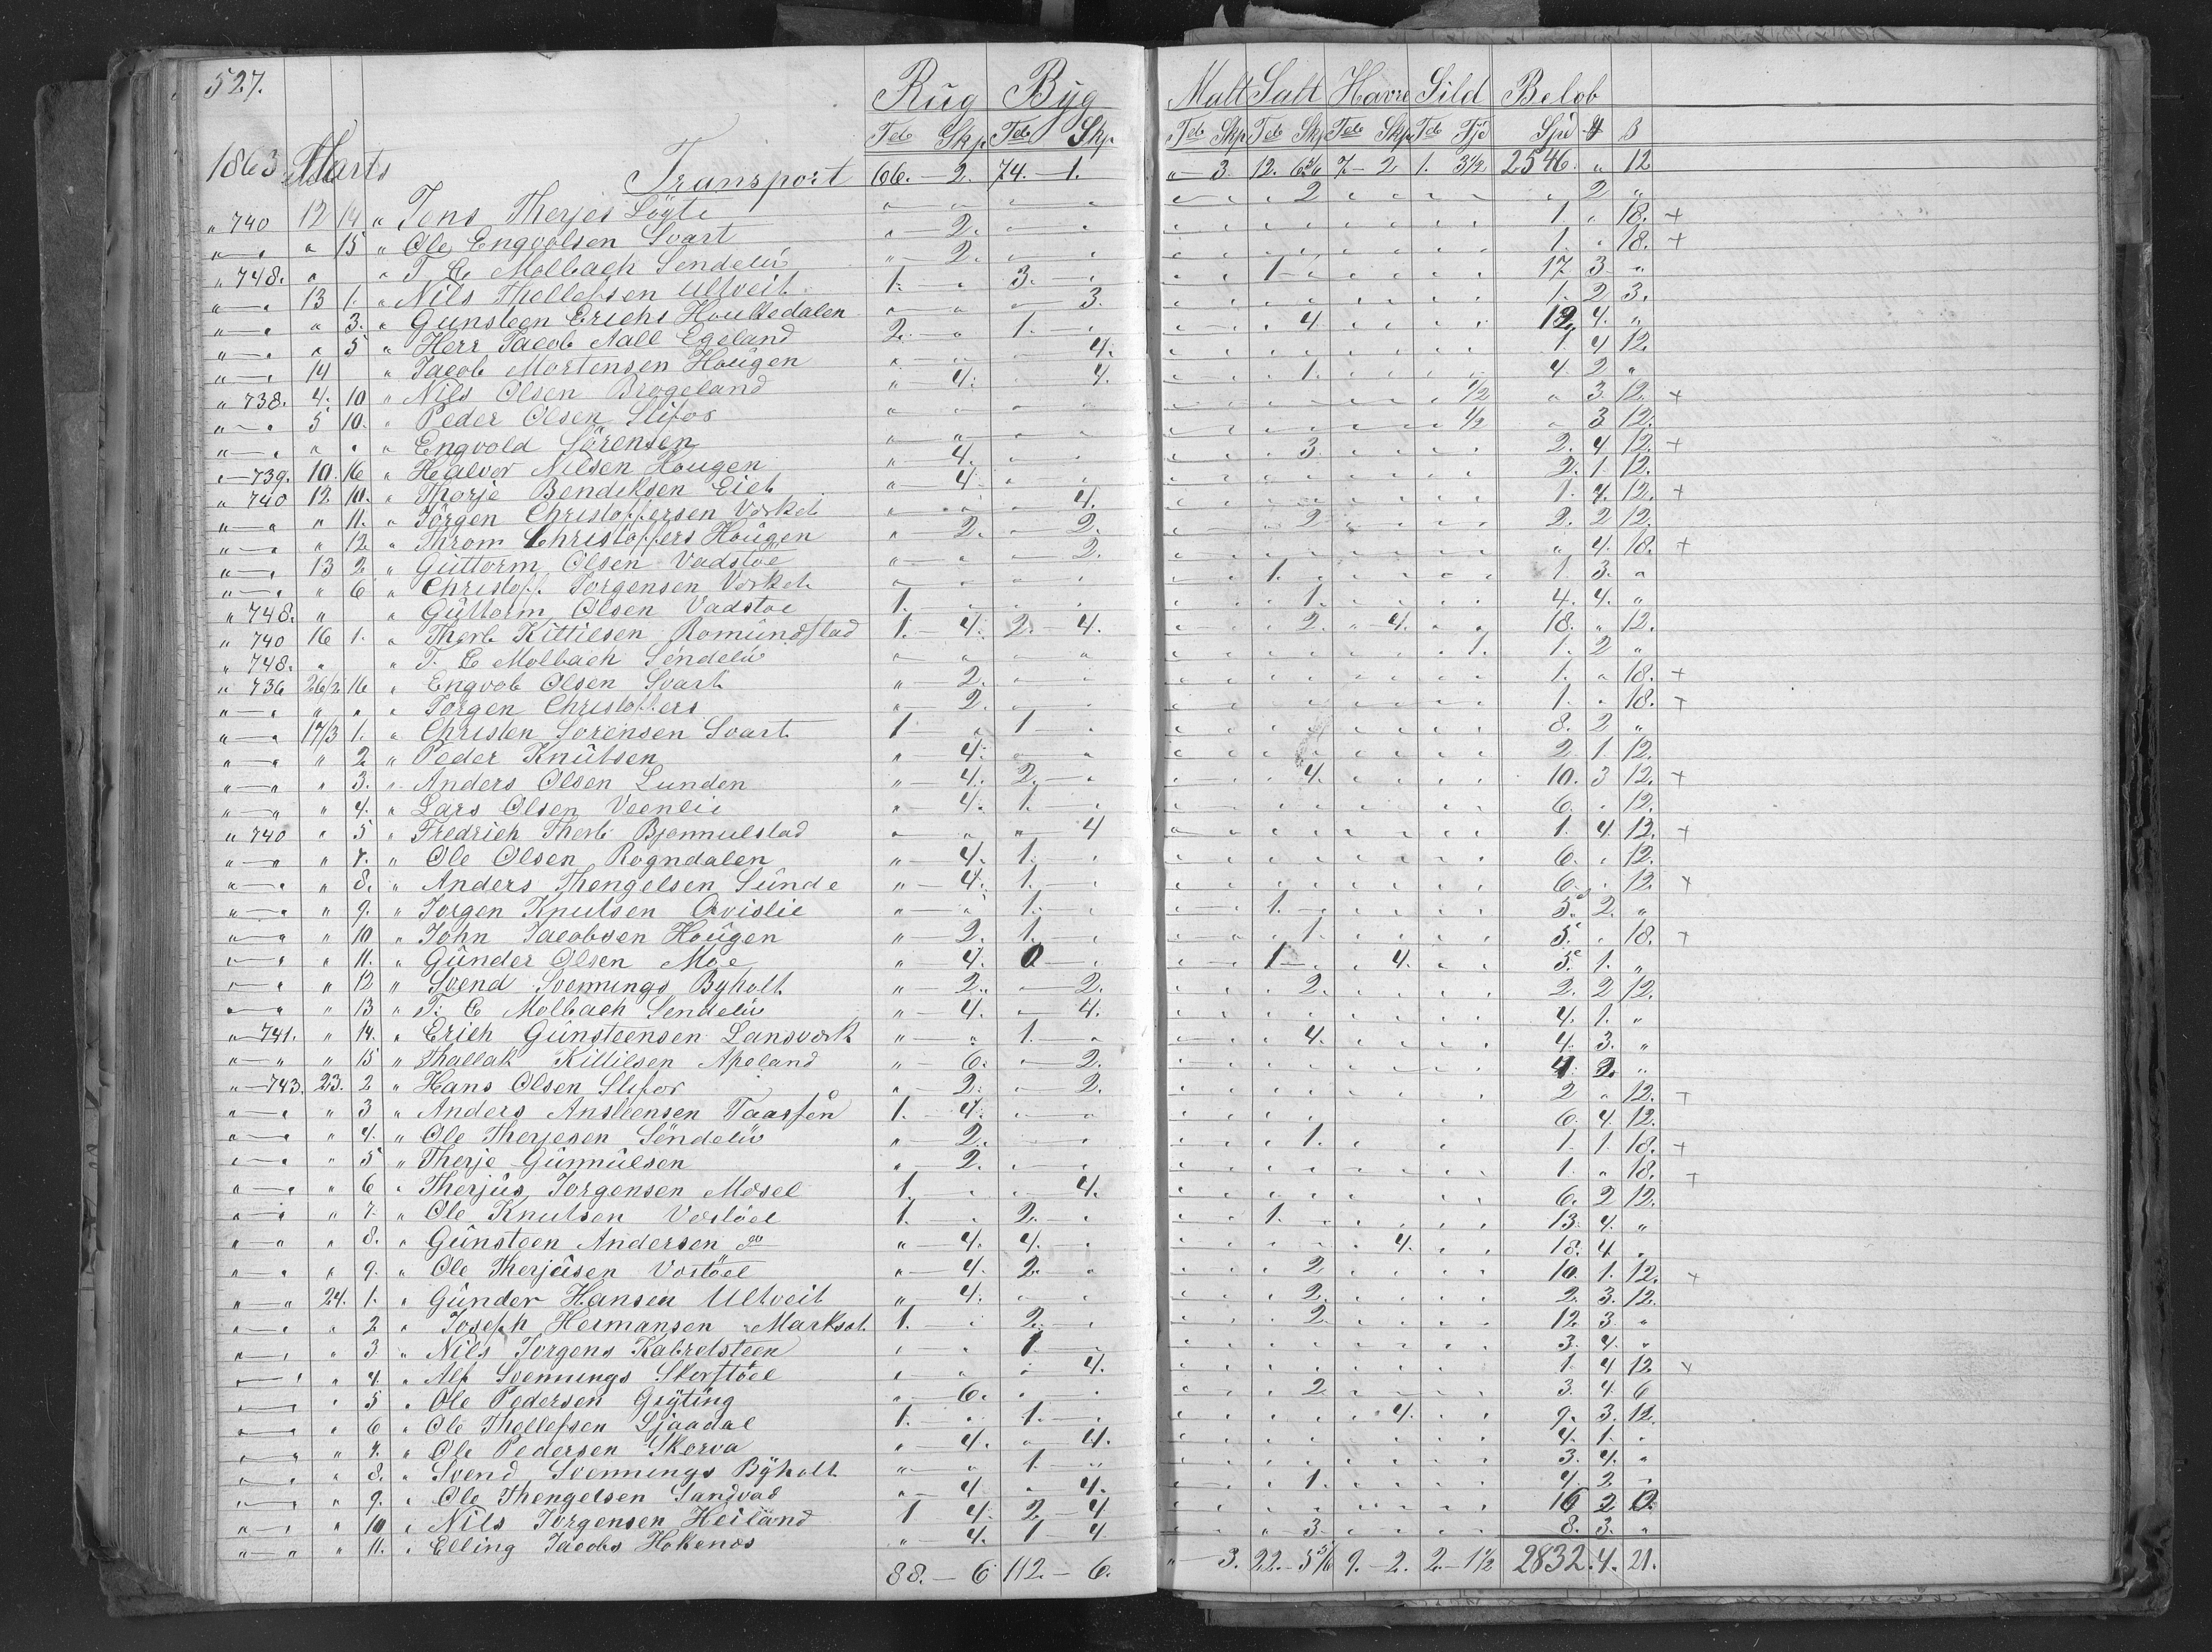 527.
Rug Byg Malt Salt Havre Sild Belob
Tdr Skp Tdr Skp Tdr Skp Tdr Skp Tdr Skp Tdr Fjd Spd
1863 Marts Transport 66.-2. 74.-1. "-3. 12. 7-2 1. 3½ 2546. " 12
" 740 12 14 " Jens Therjes 2 " 2 "
" 15 " Ole Engvolsen Svart " 2. 1. " 18. +
" 748. " " T C Molbach Søndelu " 2. 1. " 18. +
13 1. " Nils Thellefsen Ultveit 1. 3. 1 17 3 "
" 3. " Gunsteen Erichs Houkedalen 3. 1. 2 3.
" 5 " Herr Jacob Aall Egeland 2. 1. 4 19. 4. "
14 " Jacob Mortensen Hougen 4. 1. 4 12.
" 738. 4. 10 " Nils Olsen Brogeland 4. 4. 1. 4 2 "
5 10. " Peder Olsen Slifos ½ " 3. 12. +
" " " Engvold Sörensen ½ " 3 12.
739. 10. 16 " Halvor Nilsen Hougen 4. 3. 2. 4 12. +
" 740 12 10. " Thorje Bendiksen Eiet 4. 2. 1. 12.
" 11. " Jörgen Christoffersen Vorket 4. 1. 4. 12. +
" 12. " Throm Christoffers Hougen 2. 2. 2 2. 2 12.
13 2 " Guttorm Olsen Vadstøe 2. " 4. 18. +
" 6 " Christoff. Jorgensen Vorket 1. 1. 3. "
" 748. " " Guttorm Olsen Vadstoe 1. 1. 4. 4. "
" 740 16 1. " Therb Kittilsen Romundstad 1.-4. 2.-4. 2. 4. 18. " 12.
" 748. " " T. C Molbach Søndelu 1. 1. 2 "
" 736 26/2 16 " Engvob Olsen Svart 2. 1. " 18. +
" " " Jörgen Christoffers 2. 1. " 18. +
17/3 1. " Christen Sorensen Svart 1 1 8. 2 "
" 2 " Peder Knutsen 4. 2. 1. 12.
" 3. " Anders Olsen Lunden 4. 2. 4. 10. 3 12. +
" 4. " Lars Olsen Veenlie 4. 1. 6. " 12.
" 740 " 5 " Fredrich Therb Bjonnulstad 4 1. 4. 12. +
" 7. " Ole Olsen Rogndalen 4. 1. 6. " 12.
" 8. " Anders Thengelsen Sunde 4. 1. 6. " 12. +
" 9. " Jorgen Knutsen Qvislie 1. 1. 5. 2. "
" 10 " John Jacobsen Hougen 2. 1. 1. 5. " 18. +
" 11. " Gunder Olsen Moe 4. 0 1 4. 5. 1. "
" 12 " Svend Svennings Byholt 2. 2. 2. 2. 2 12.
" 13 " T. C Molbach Sendelu 4. 4. 4. 1. "
" 741. " 14. " Erich Gunsteensen Lansverk 1. 4. 4. 3. "
" 15 " Thallak Kittilsen Apeland 6. 2. 4 2. "
" 743. 23. 2 " Hans Olsen Slifor 2. 2. 2 " 12. +
" 3 " Anders Ansteensen 1. 4. 6. 4 12.
" 4. " Ole Therjesen Søndelüv 2. 1. 1. 1. 18. +
" 5 " Therje Gunnulsen 2. 1. " 18. +
" 6 " Therjus Jorgensen Mosel 1. 4. 6. 2 12.
" 7 " Ole Knutsen Vostöel 1. 2. 1. 13. 4. "
" 8. " Gunsteen Andersen do 4. 4. 4. 18. 4 .
" 9. " Ole Therjusen Vostöel 4. 2. 2 10. 1. 12. +
24. 1. " Günder Hansen Ultveit 4. 2. 2. 3. 12.
" 2 " Joseph Hermansen Markset 1. 2. 2 12. 3. "
" 3 " Nils Jorgens Kabretsteen 1 3. 4. "
" 4. " Alf Svennings Skorstöel 4. 1. 4 12 +
" 5 " Ole Pedersen Gryting 6. 2 3. 4. 6
" 6 " Ole Thellefsen Ljaadal 1. 1. 4. 9. 3. 12.
" 7. " Ole Pedersen Skorva 4. 4. 4. 1. "
" 8. " Svend Svennings Byholt 1. 3. 4. "
" 9. " Ole Thengelsen Sandvad 4 4. 1. 4. 2 "
" 10 " Nils Jorgensen Heiland 1 4. 2 4 16 2 0
" 11. " Elling Jacobs Hokenos 4. 1 4 3. 8. 3. "
88.-6 112.-6. "-3. 22.-5 9.-2. 2.-1½ 2832.4.21.